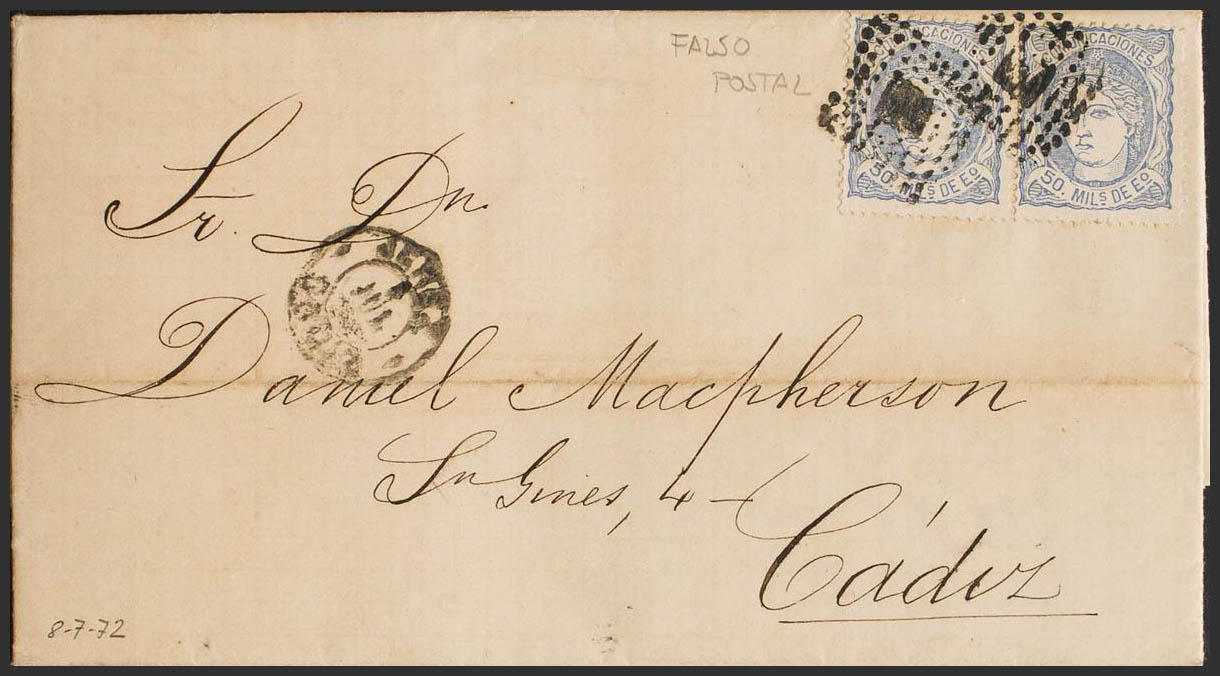 FALSO
POSTAL
COMUNICACIONES
50. MILS DE Eo
COMUNICACIONES
50. MILS DE Eo
Sr. Dn.
Daniel Macpherson
Sn Gines, 4 -
Cádiz
8-7-72